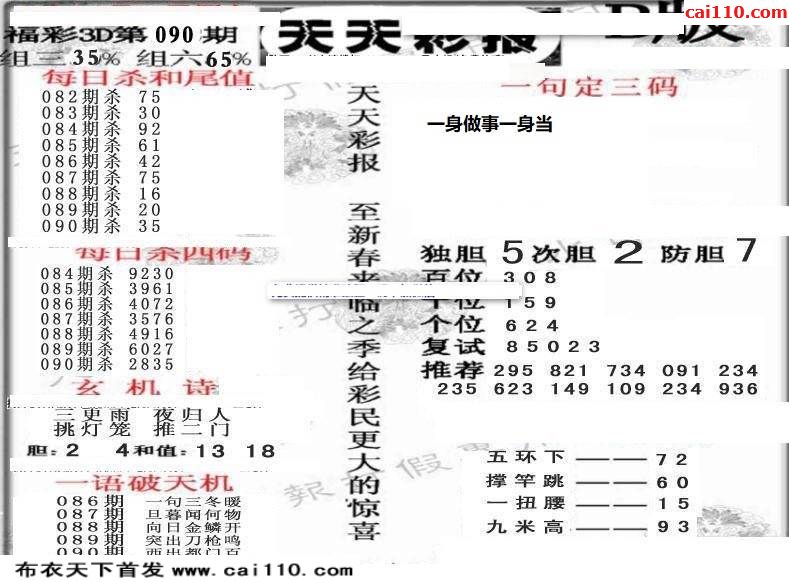 cai110.com
福彩3D第090期
天天彩报
组三35% 组六65%
每日杀和尾值
082期杀 75
083期杀 30
084期杀 92
085期杀 61
086期杀 42
087期杀 75
088期杀 16
089期杀 20
090期杀 35
每日杀四码
084期杀 9230
085期杀 3961
086期杀 4072
087期杀 3576
088期杀 4916
089期杀 6027
090期杀 2835
玄机诗
三更雨 夜归人
挑灯笼 推二门
胆:2 4和值:13 18
一语破天机
086期 一句三冬暖
087期 旦暮闻何物
088期 向日金鳞开
089期 突出刀枪鸣
090期 西出都门百
天天彩报 至新春来临之季给彩民更大的惊喜
一句定三码
一身做事一身当
独胆 5 次胆 2 防胆 7
百位 308
十位 159
个位 624
复试 85023
推荐 295 821 734 091 234
235 623 149 109 234 936
五环下——72
撑竿跳——60
一扭腰——15
九米高——93
cai110.com
布衣天下首发 www.cai110.com